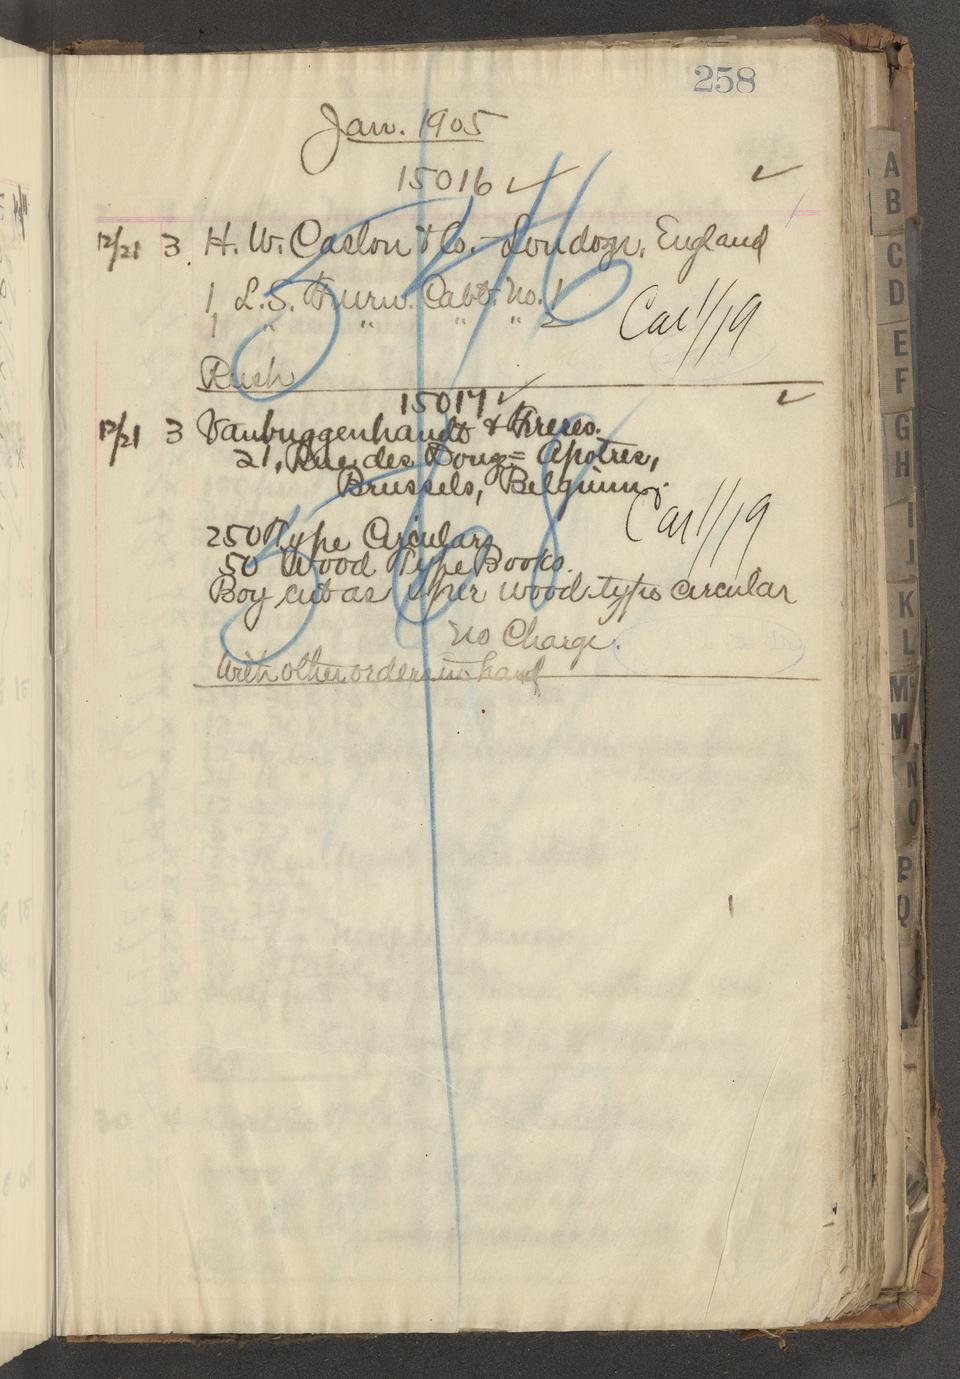 258
Jan. 1905
15016 ✓ ✓
12/21 3 H. W. Caslon & Co. - London, England
1 L.S. Furn. Cabt. No. 1
1 " " " " 2
Car 1/19
Rush
15017 ✓ ✓
12/21 3 Vanbuggenhoudt & Freres.
21, Rue des Douze = Apotres,
Brussels, Belgium.
Car 1/19
250 Type Circulars
50 Wood Type Books.
Boy cut as per wood type circular
No Charge.
With other orders in hand
A
B
C
D
E
F
G
H
I
J
K
L
M
M
N
O
P
Q